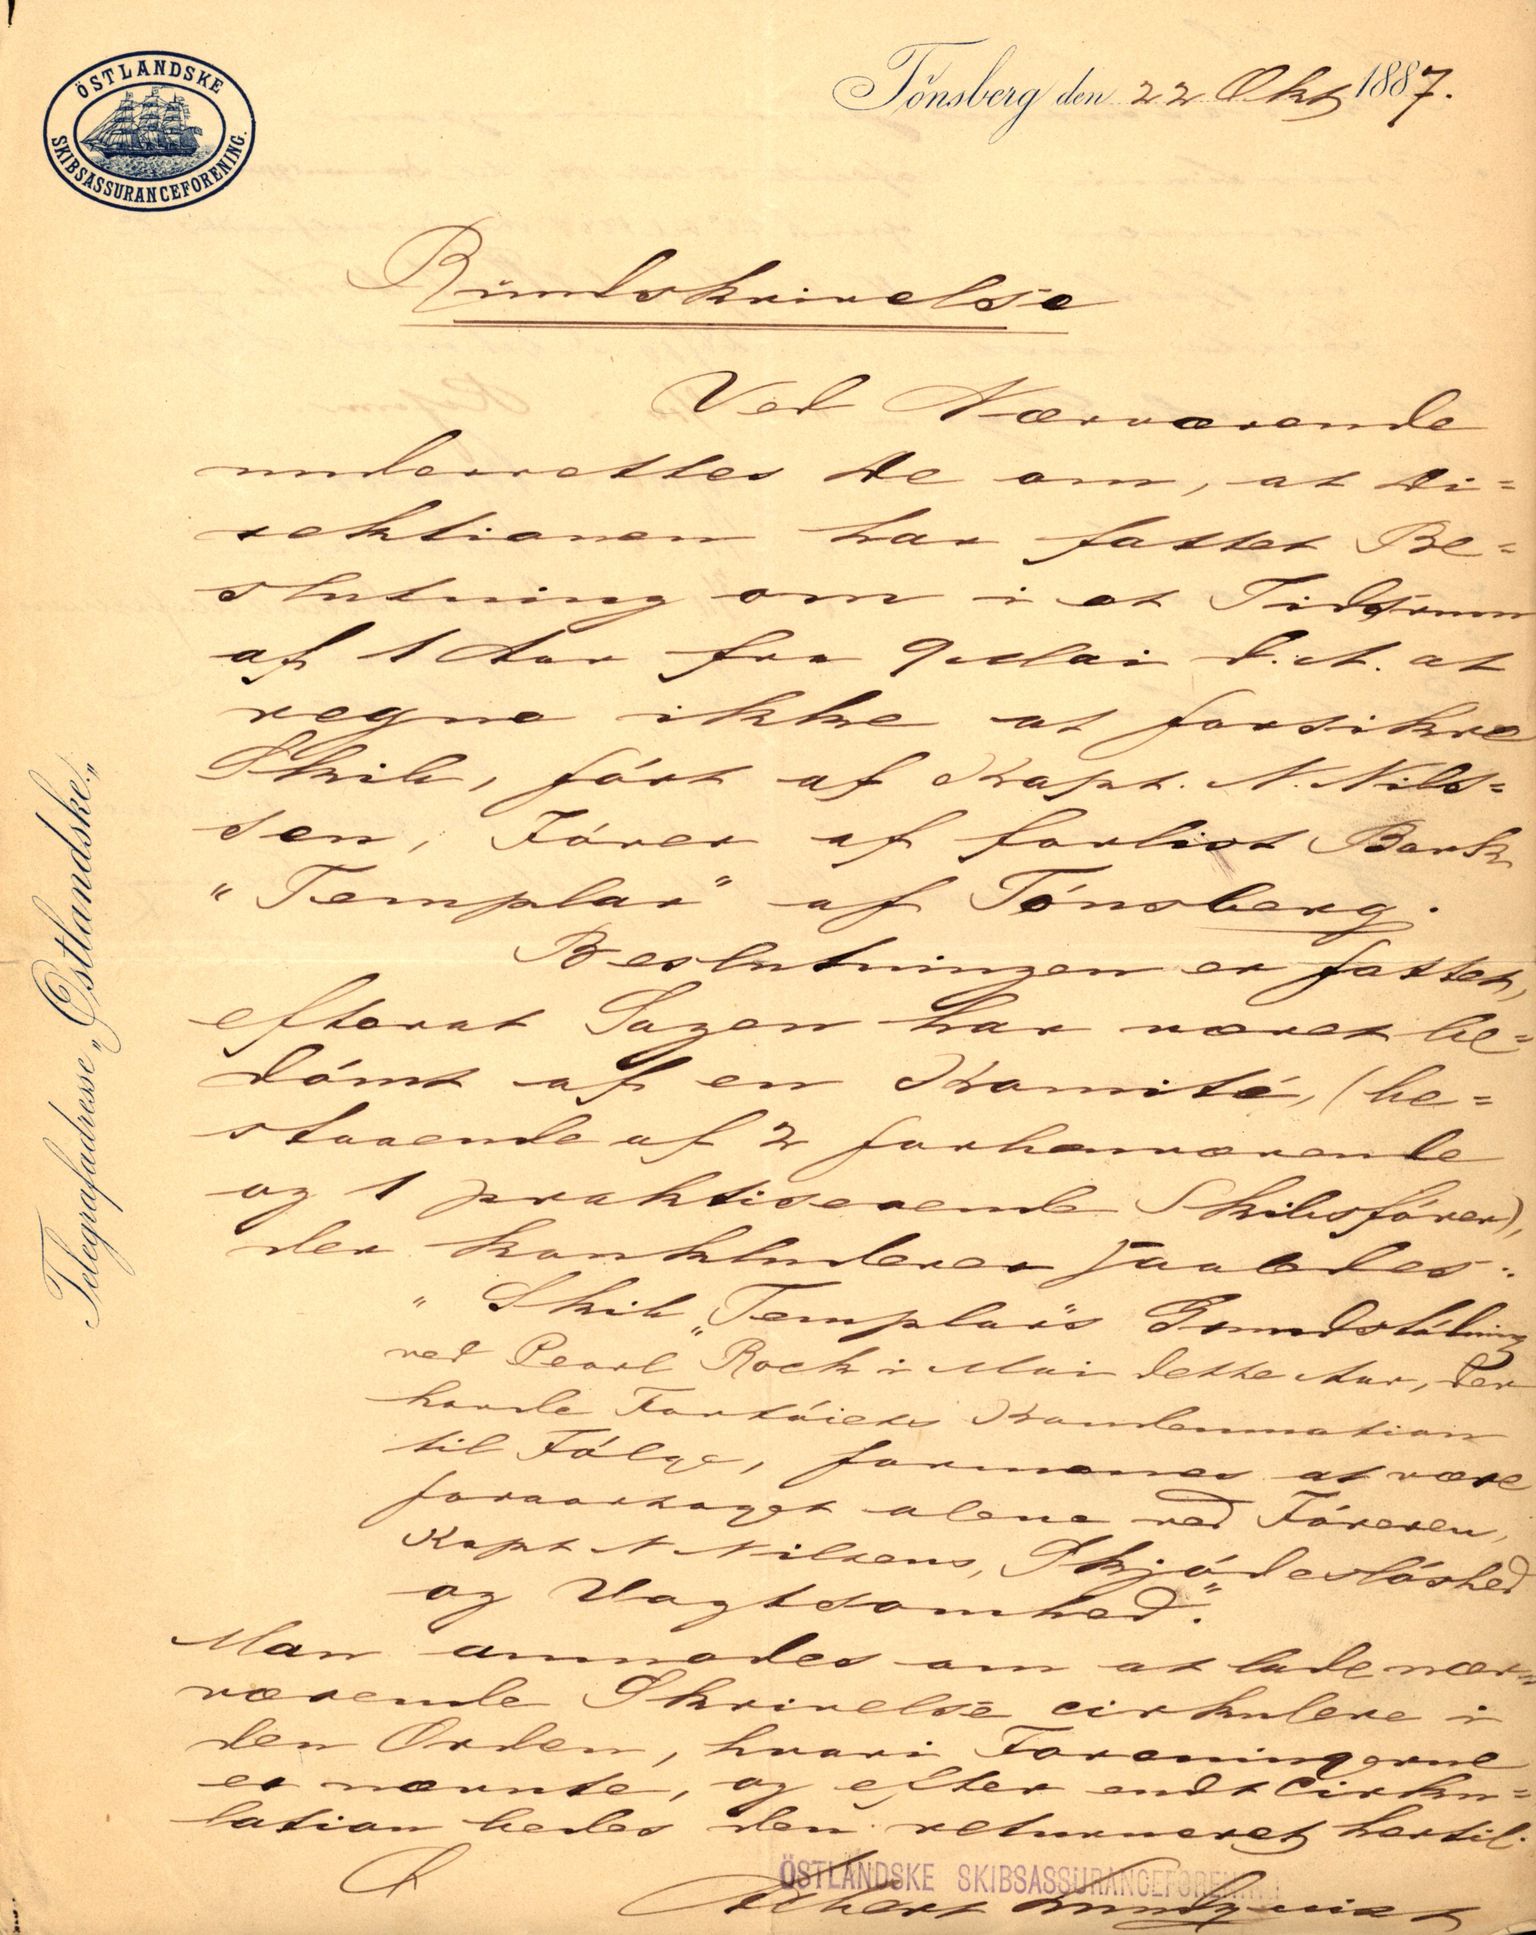 ÖSTLANDSKE
SKIBSASSURANCEFORENING.
Tönsberg den 22 Okt 1887.
Rundskrivelse
Ved Nærværende
underrettes De om, at Di=
rektionen har fattet Be=
slutning om i et Tidsrum
af 1 Aar fra 9 Mai d. A. at
regne ikke at forsikre
Skib, ført af Kapt. N. Nils=
sen, Fører af forlist Bark
"Templar" af Tönsberg.
Beslutningen er fattet,
efterat Sagen har været be=
dömt af en Komité, (be=
staaende af 2 forhenværende
og 1 praktiserende Skibsförer),
der konkluderer saaledes:
"Skib "Templar's Grundstödning
ved Pearl Rock i Mai dette Aar, der
havde Fartöiets Kondemnation
til Fölge, formenes at være
foraarsaget alene ved Föreren,
Kapt N Nilsens, Skjödeslöshed
og Uagtsomhed."
Man anmodes om at lade nær=
værende Skrivelse cirkulere i
den Orden, hvori Foreningerne
er nævnte, og efter endt Cirku=
lation bedes den returneret hertil.
ÖSTLANDSKE SKIBSASSURANCEFORENING
Telegrafadresse „Östlandske."